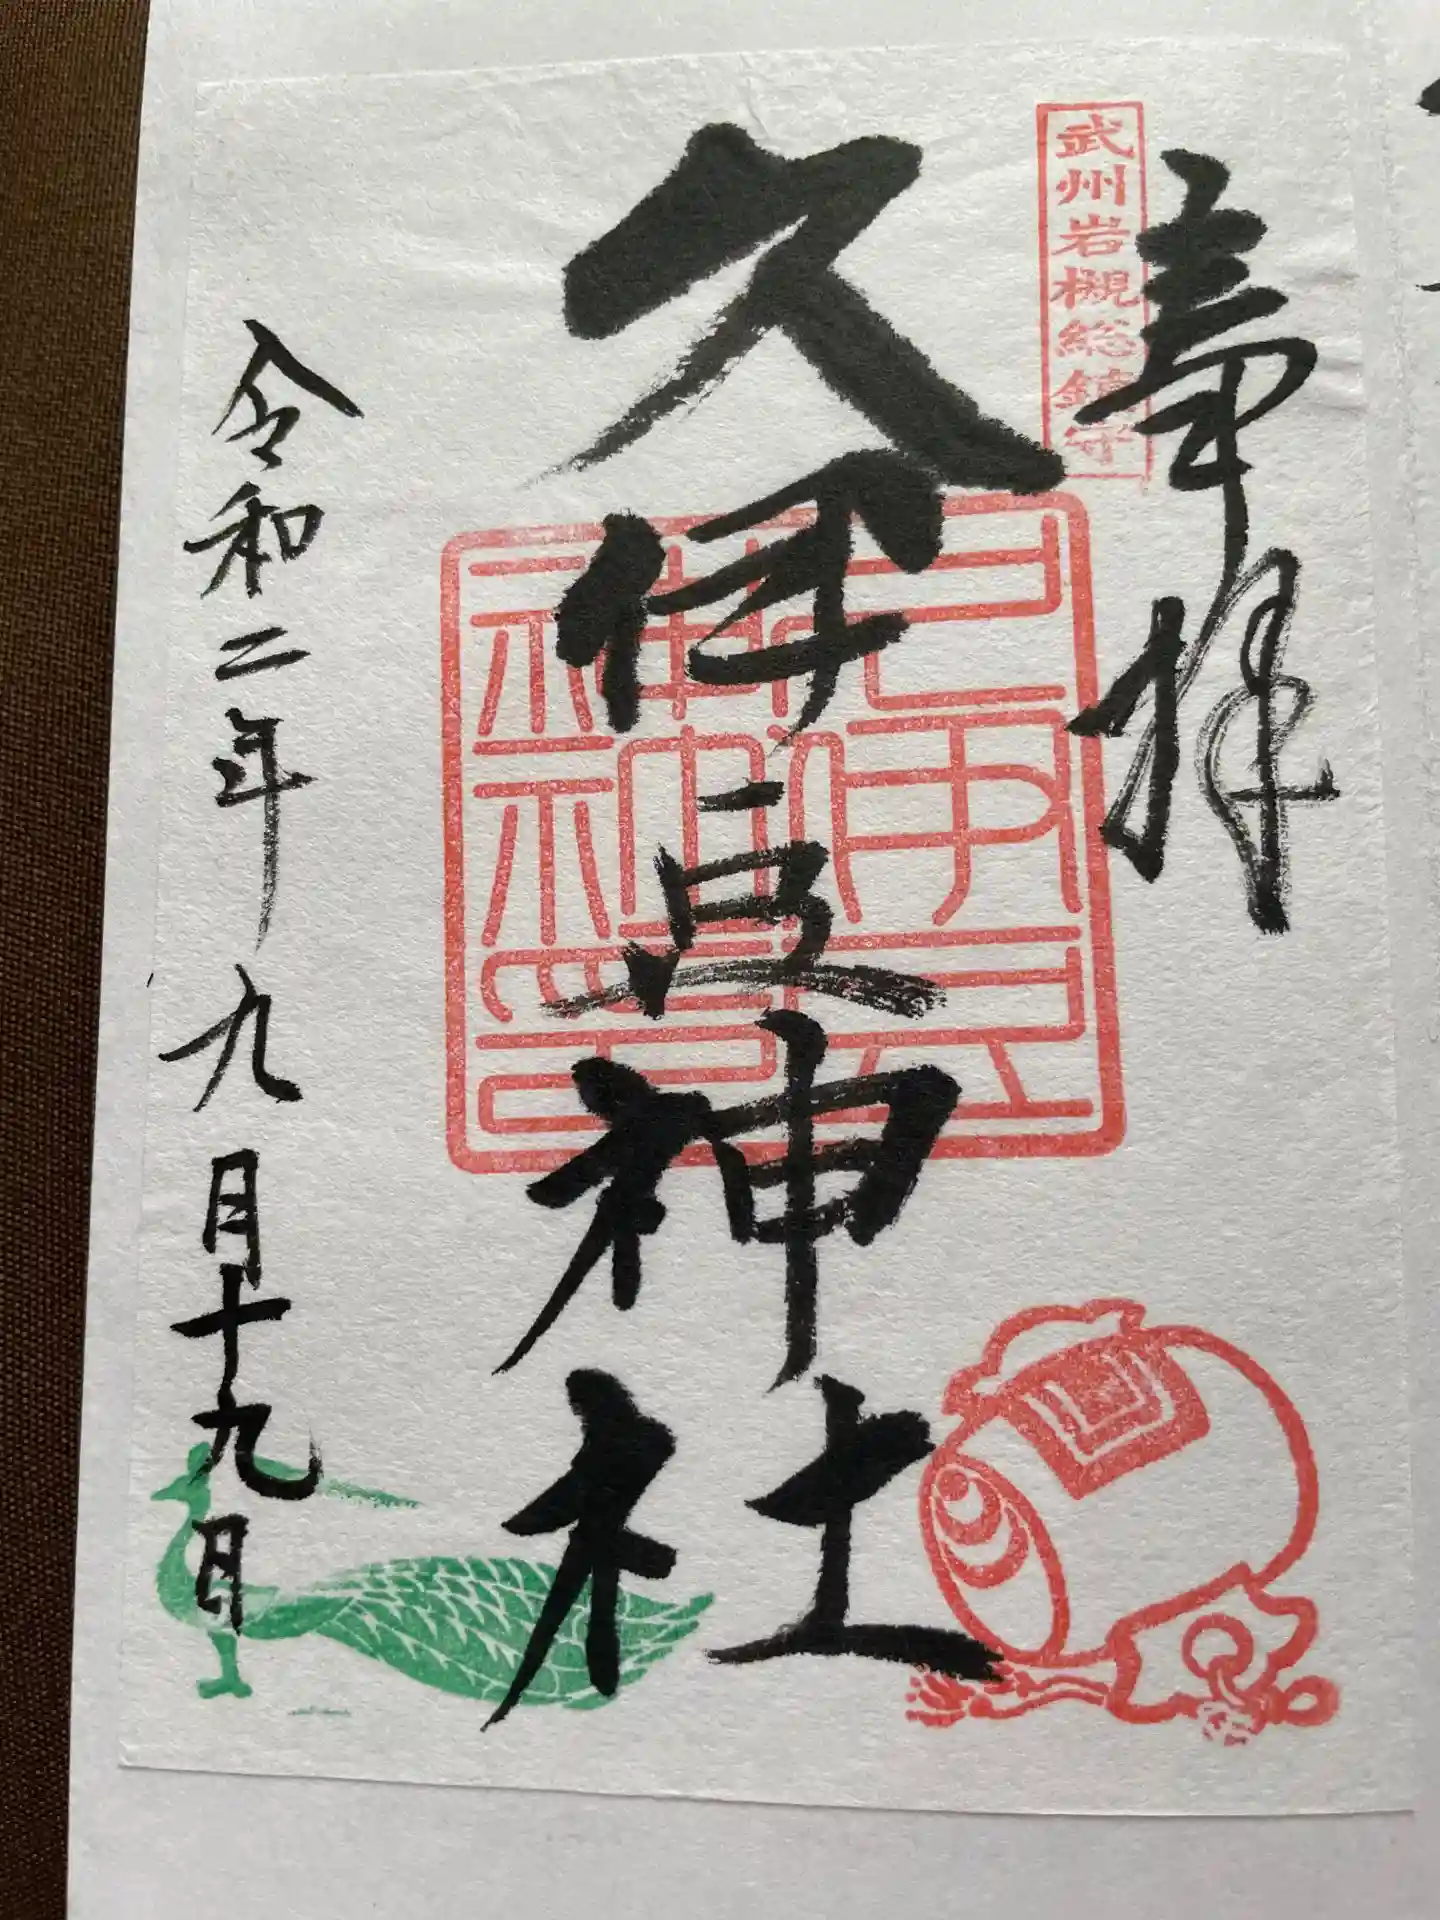 奉拝
武州岩槻総鎮守
久伊豆神社
久伊豆神社神社之印
令和二年九月十九日